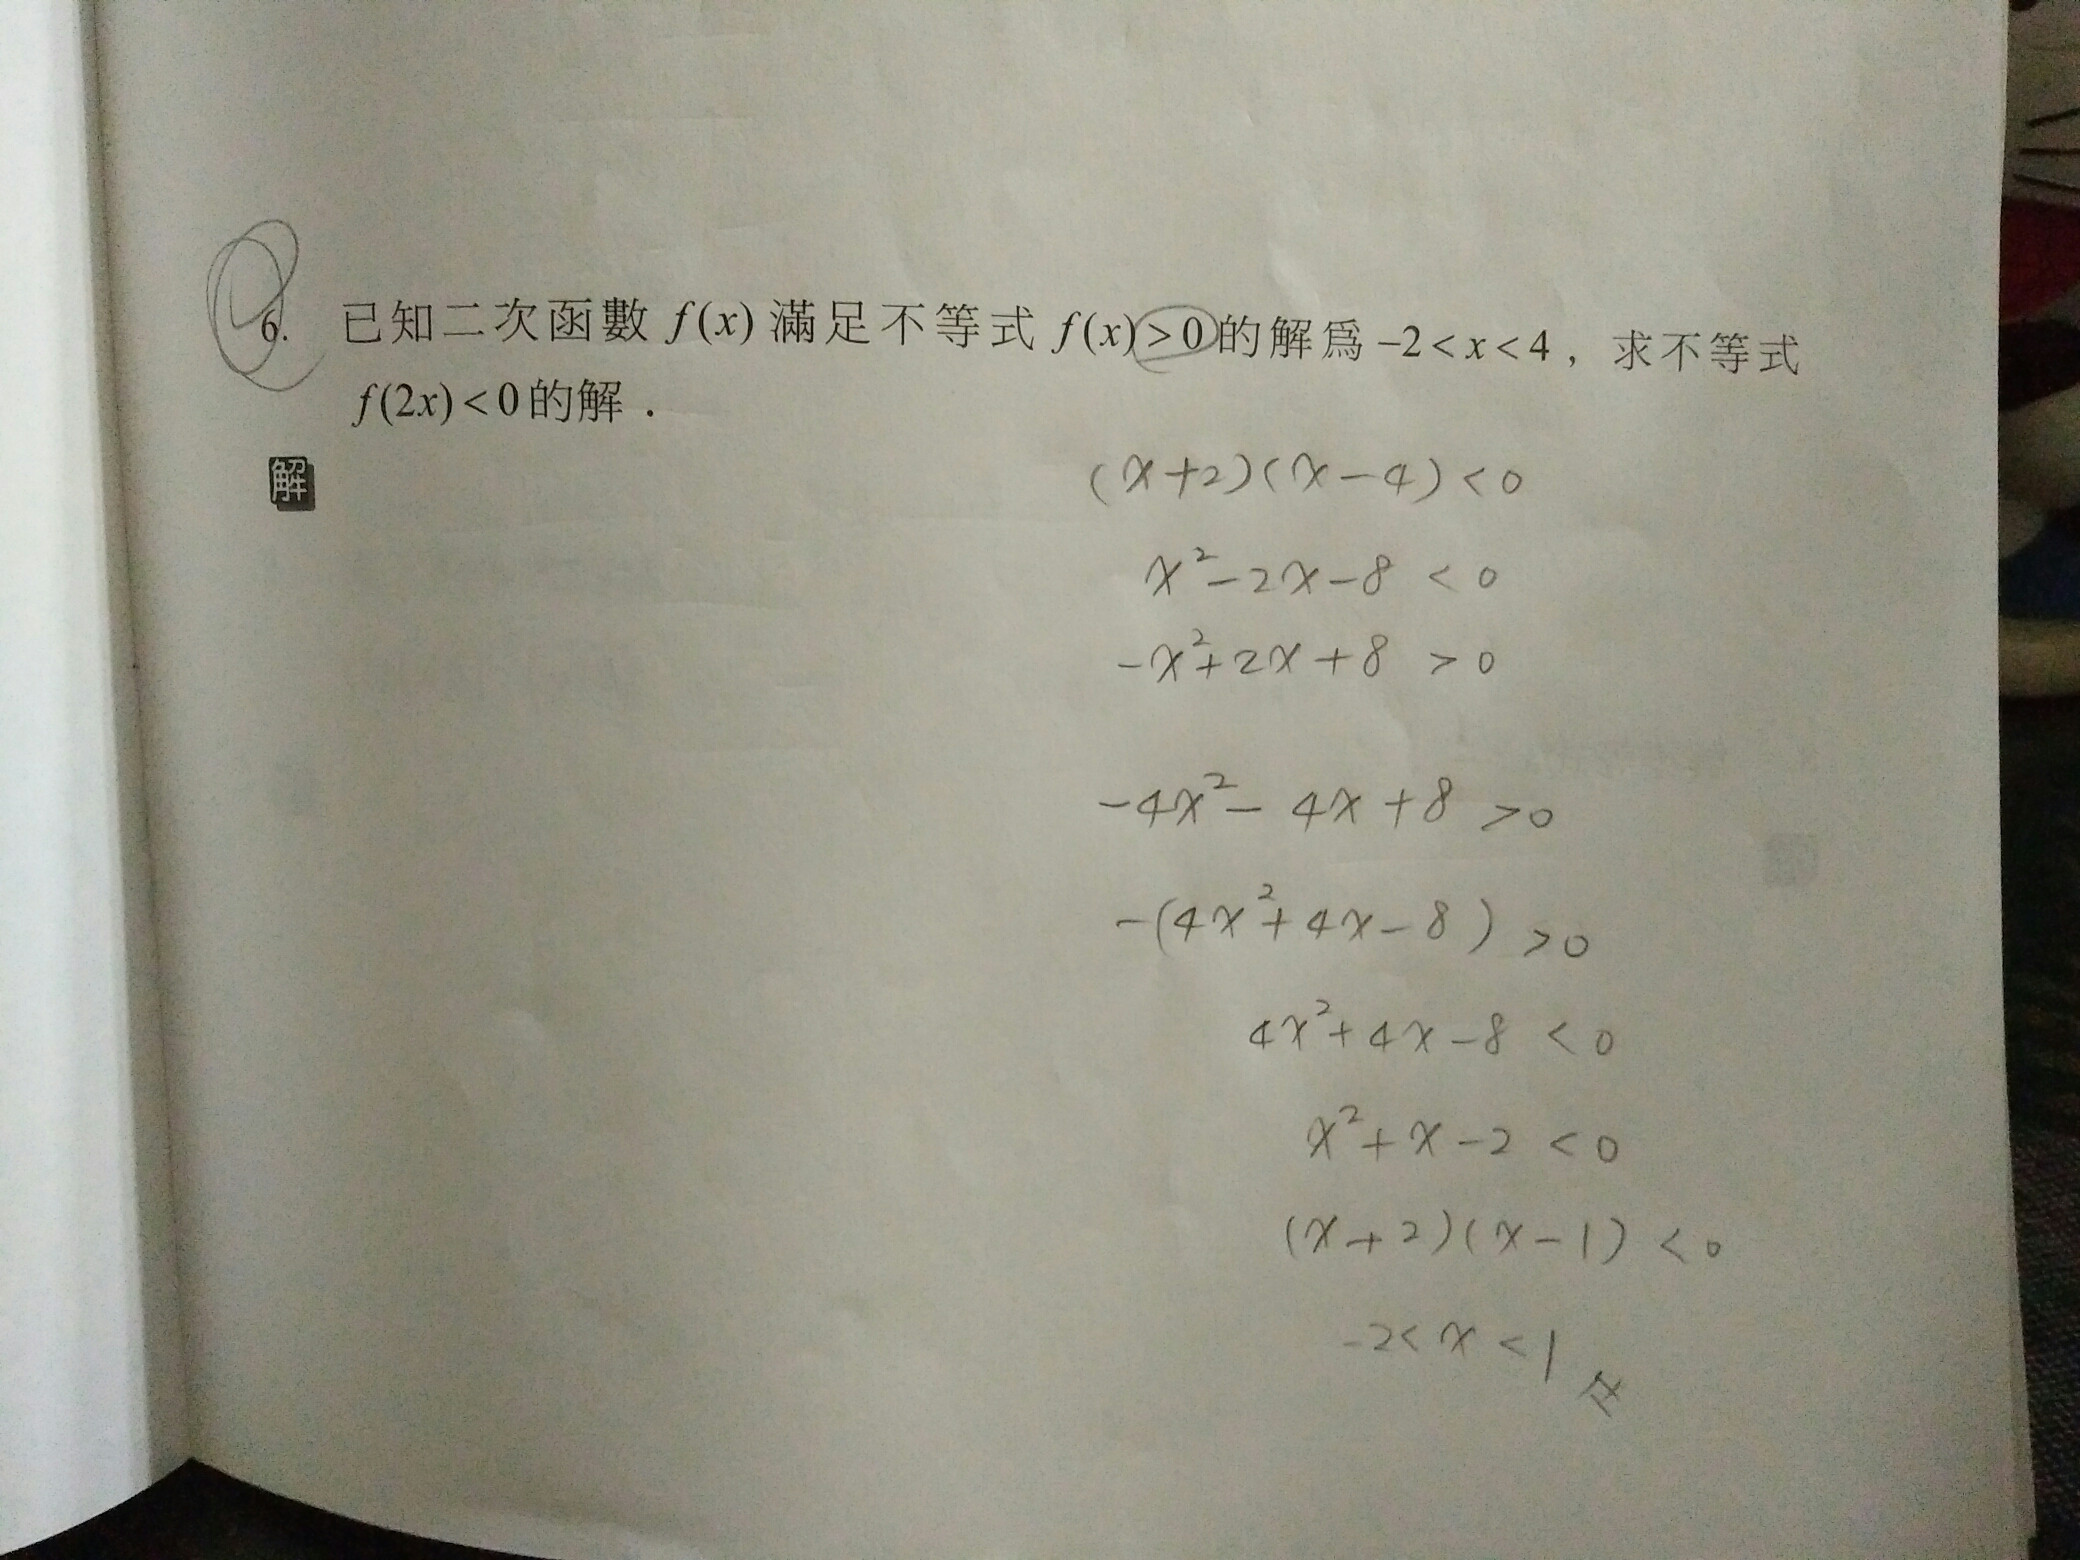 6. 已知二次函數 f(x) 滿足不等式 f(x)>0 的解爲 −2<x<4，求不等式
f(2x)<0 的解．
解
(x+2)(x-4)<0
x²-2x-8 <0
-x²+2x+8 >0
-4x²- 4x+8 >0
-(4x²+4x-8) >0
4x²+4x-8 <0
x²+x-2 <0
(x+2)(x-1) <0
-2<x<1